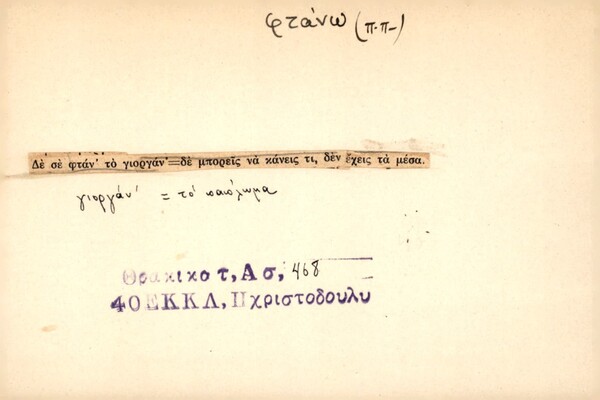 φτάνω (π.π-)
Δὲ σὲ φτάν' τὸ γιοργάν'=δὲ μπορεῖς νὰ κάνεις τι, δὲν ἔχεις τὰ μέσα.
γιοργάν' = τὸ πάπλωμα
Θρακικο τ, Α σ, 468
40ΕΚΚΛ, Πχριστοδουλυ